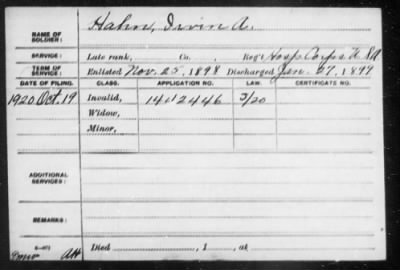 NAME OF SOLDIER: Hahn, Irvin A.
SERVICE: Late rank, Co. , Reg't Hosp Corps U.S.A
TERM OF SERVICE: Enlisted Nov. 25, 1898 Discharged Jan. 27, 1899
DATE OF FILING. CLASS. APPLICATION NO. LAW. CERTIFICATE NO.
1920 Oct. 19 Invalid, 1412446 3/20
Widow,
Minor,
ADDITIONAL SERVICES:
REMARKS:
Died , 1 , at